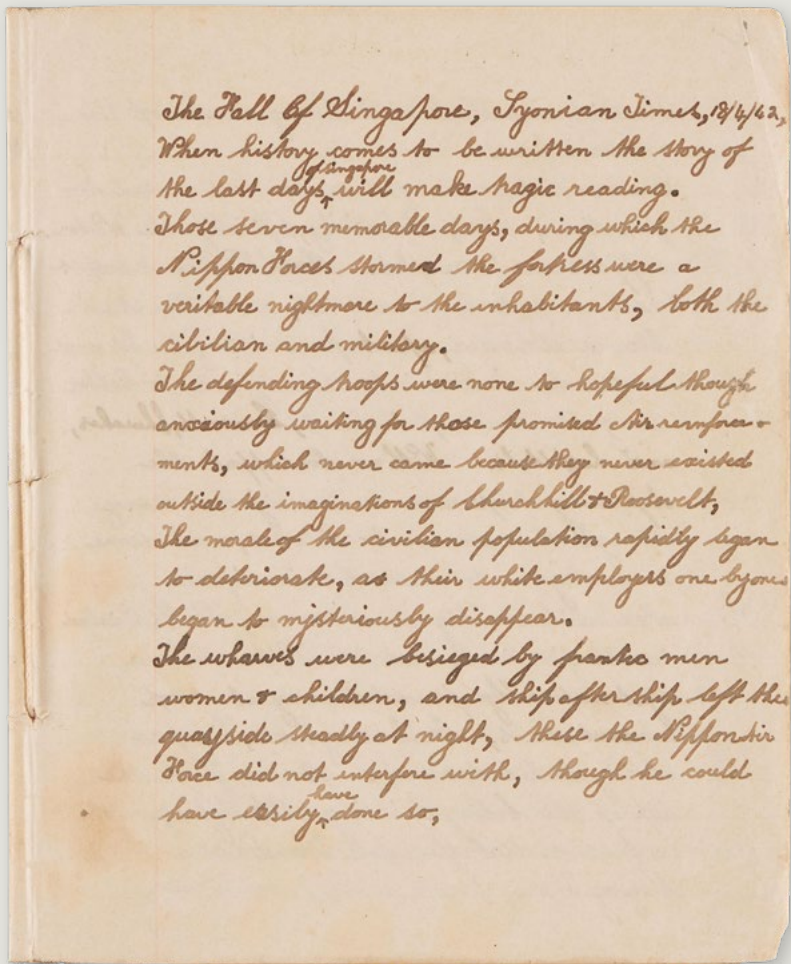 The Fall Of Singapore, Syonian Times, 18/4/42,
When history comes to be written the story of
the last days of Singapore will make tragic reading.
Those seven memorable days, during which the
Nippon Forces stormed the fortress were a
veritable nightmare to the inhabitants, both the
cibilian and military.
The defending troops were none to hopeful though
anxiously waiting for those promised Air reinforce-
ments, which never came because they never existed
outside the imaginations of Churchhill & Roosevelt,
The morale of the civilian population rapidly began
to deteriorate, as their white employers one by one
began to mysteriously disappear.
The wharves were besieged by frantic men
women & children, and ship after ship left the
quayside steadily at night, these the Nippon Air
Force did not interfere with, though he could
have easily have done so,